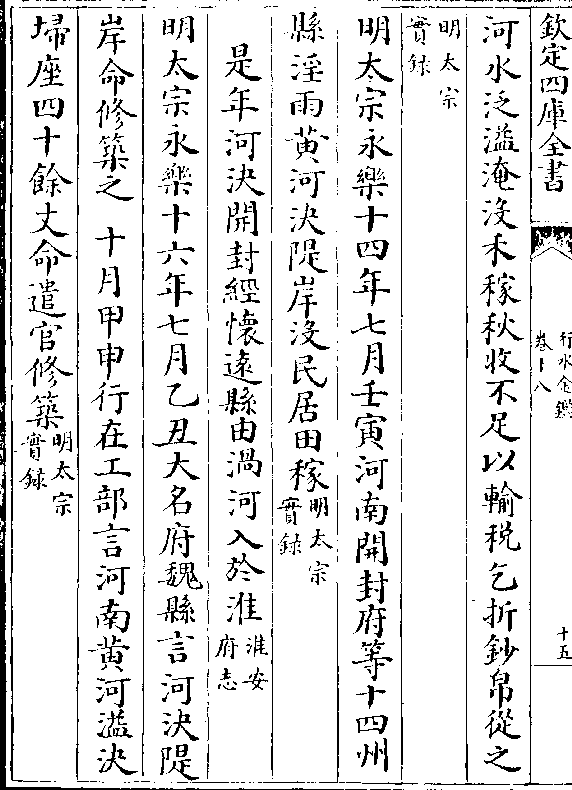 欽定四庫全書
行水金鑑
卷十八
十五
河水泛溢淹沒禾稼秋收不足以輸税乞折鈔帛從之
明太宗
實録
明太宗永樂十四年七月壬寅河南開封府等十四州
縣淫雨黄河決隄岸沒民居田稼明太宗
實録
是年河決開封經懷遠縣由渦河入於淮淮安
府志
明太宗永樂十六年七月乙丑大名府魏縣言河決隄
岸命修築之 十月甲申行在工部言河南黄河溢決
埽座四十餘丈命遣官修築明太宗
實録